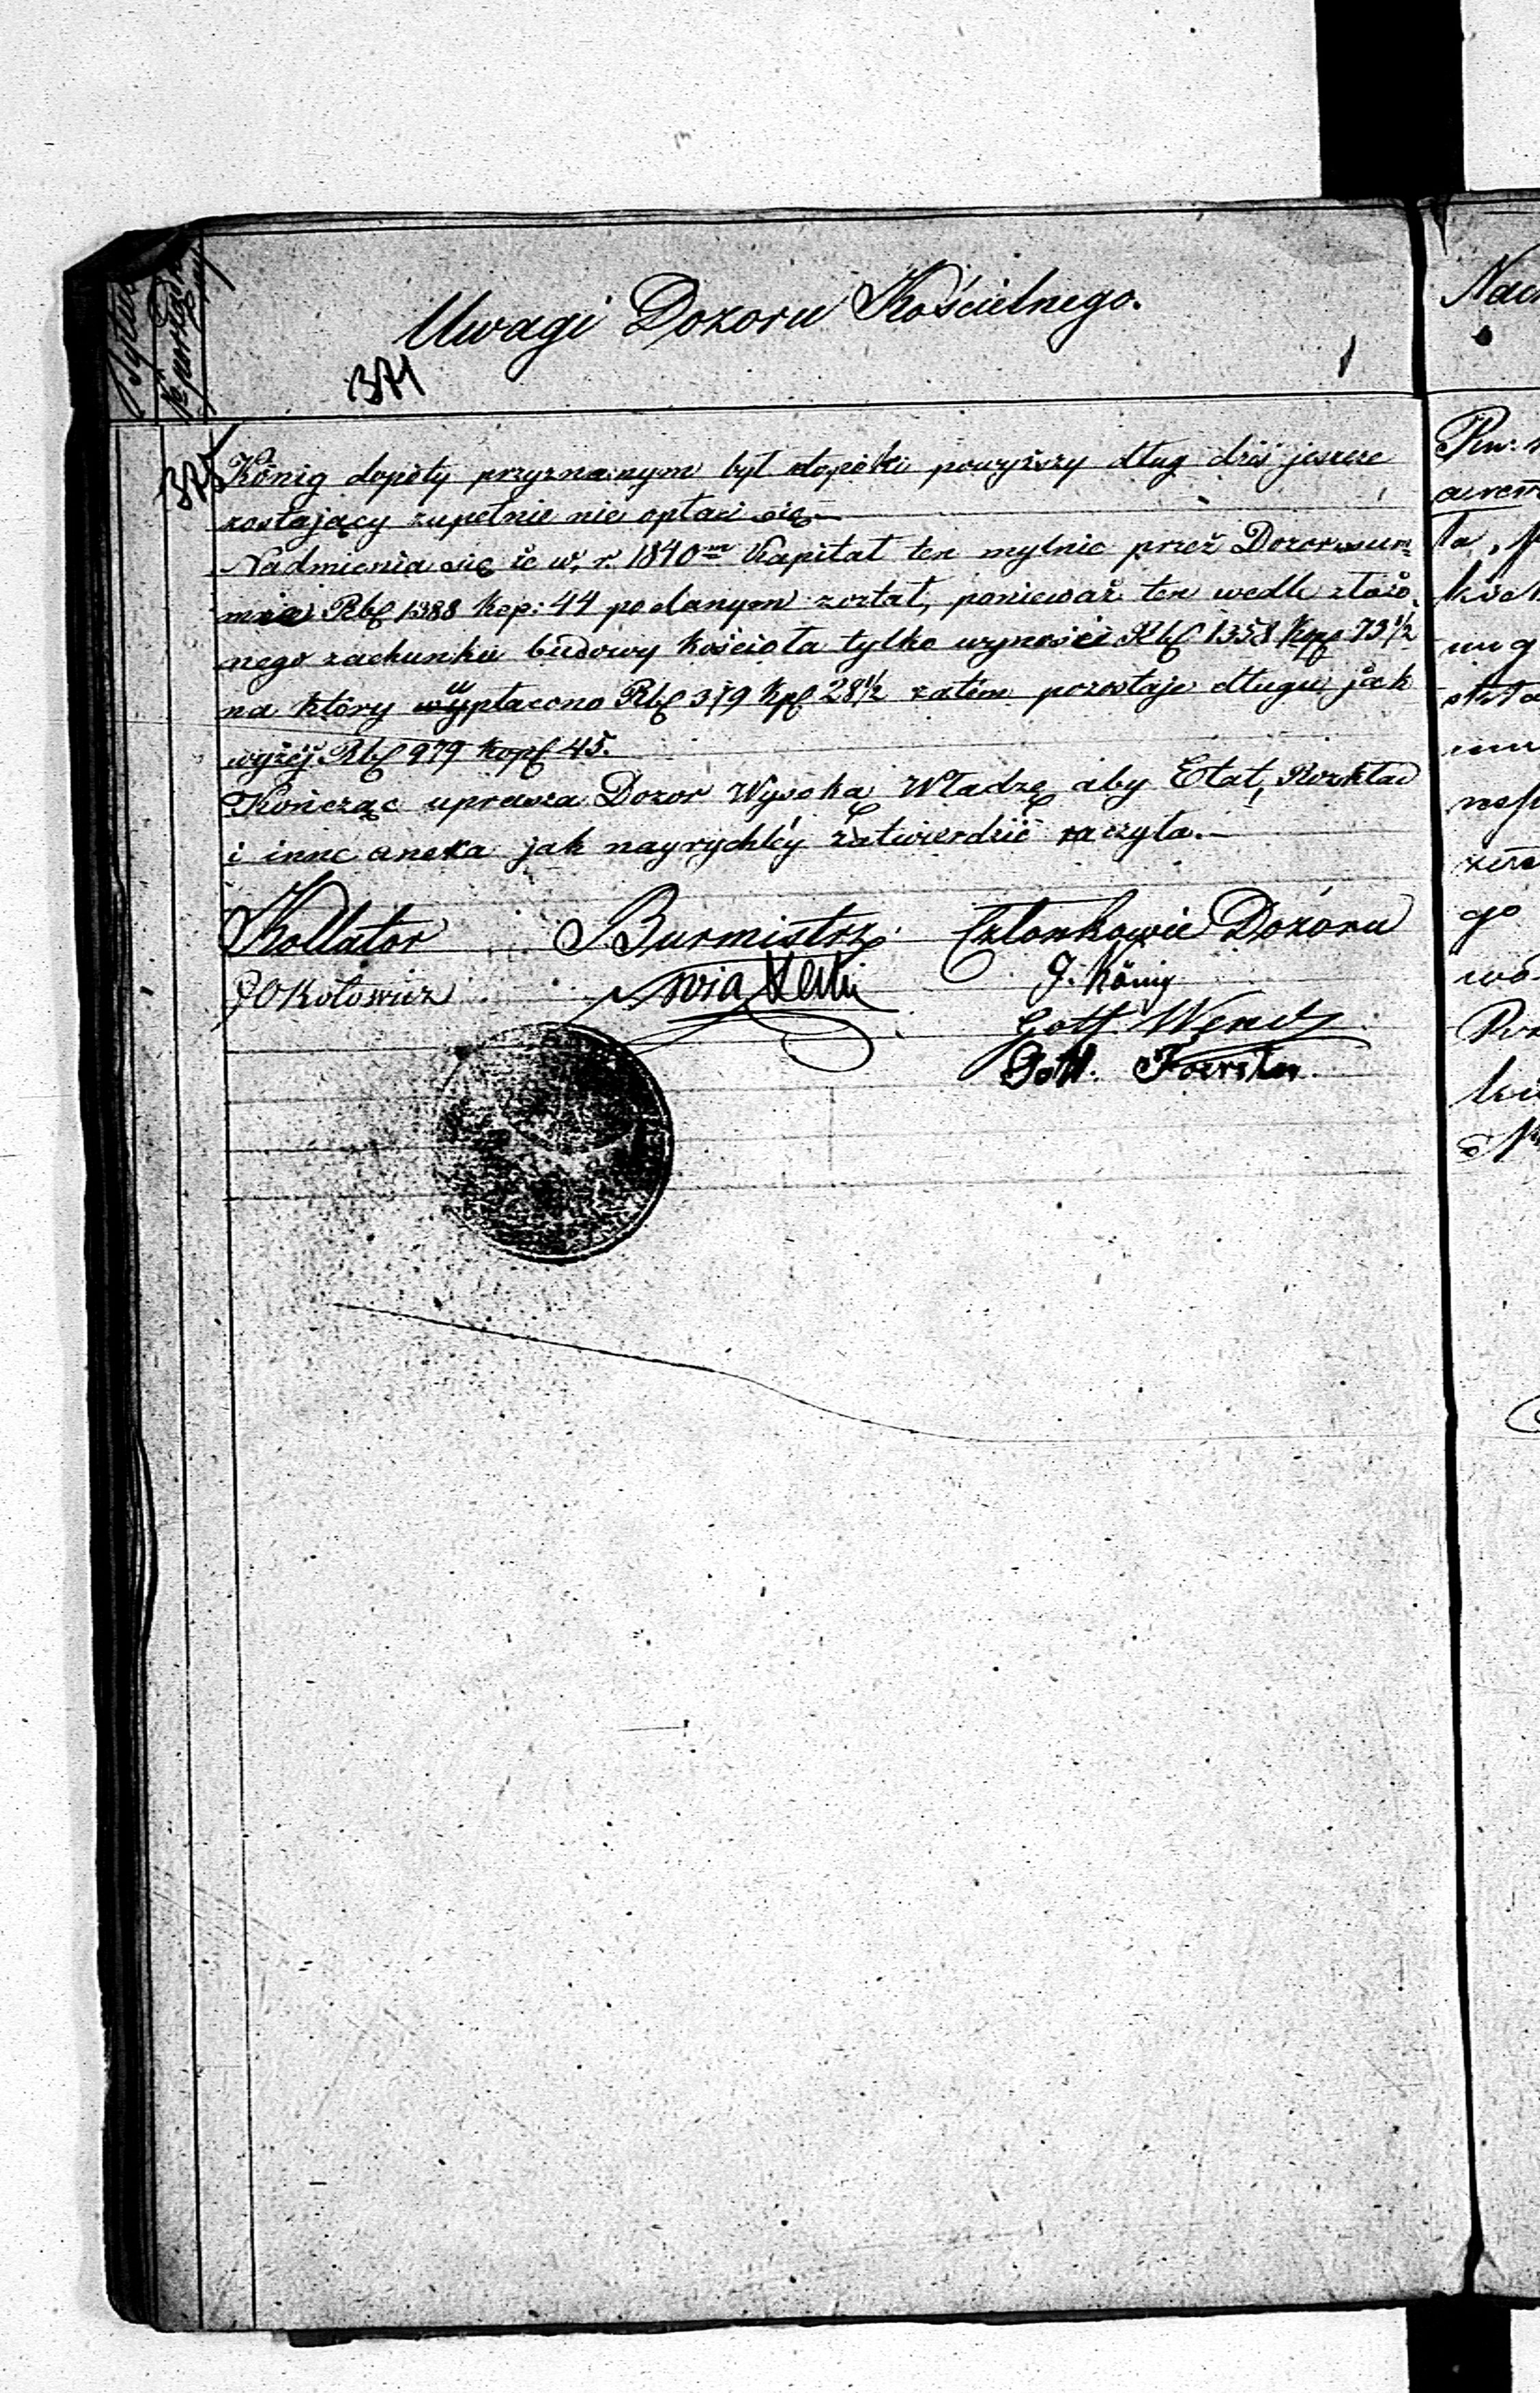 Tytuł
№ porządkowy
Uwagi Dozoru Kościelnego.
371
375
König dopóty przyznanym był dopóki powyższy dług dziś jeszcze
zostający zupełnie nie opłaci się.—
Nadmienia się że w r. 1840ᵐ Kapitał ten mylnie przez Dozor w sum
mie Rbſ 1388 Kop: 44 podanym został, ponieważ ten wedle złożo
nego rachunku budowy kościoła tylko wynosić Rbſ 1358 Kopſ 73½
na który wypłacono Rbſ 379 Kpſ 28½ zatém pozostaje długu jak
wyżéj Rbſ 979 Kopſ 45.
Kończąc uprasza Dozor Wysoką Władzę aby Etat, Rozkład
i inne anexa jak nayrychléy zatwierdzić raczyła.—
Kollator Burmistrz Członkowie Dozoru
J. König
Gotf. Wende
Gottl. Foerster